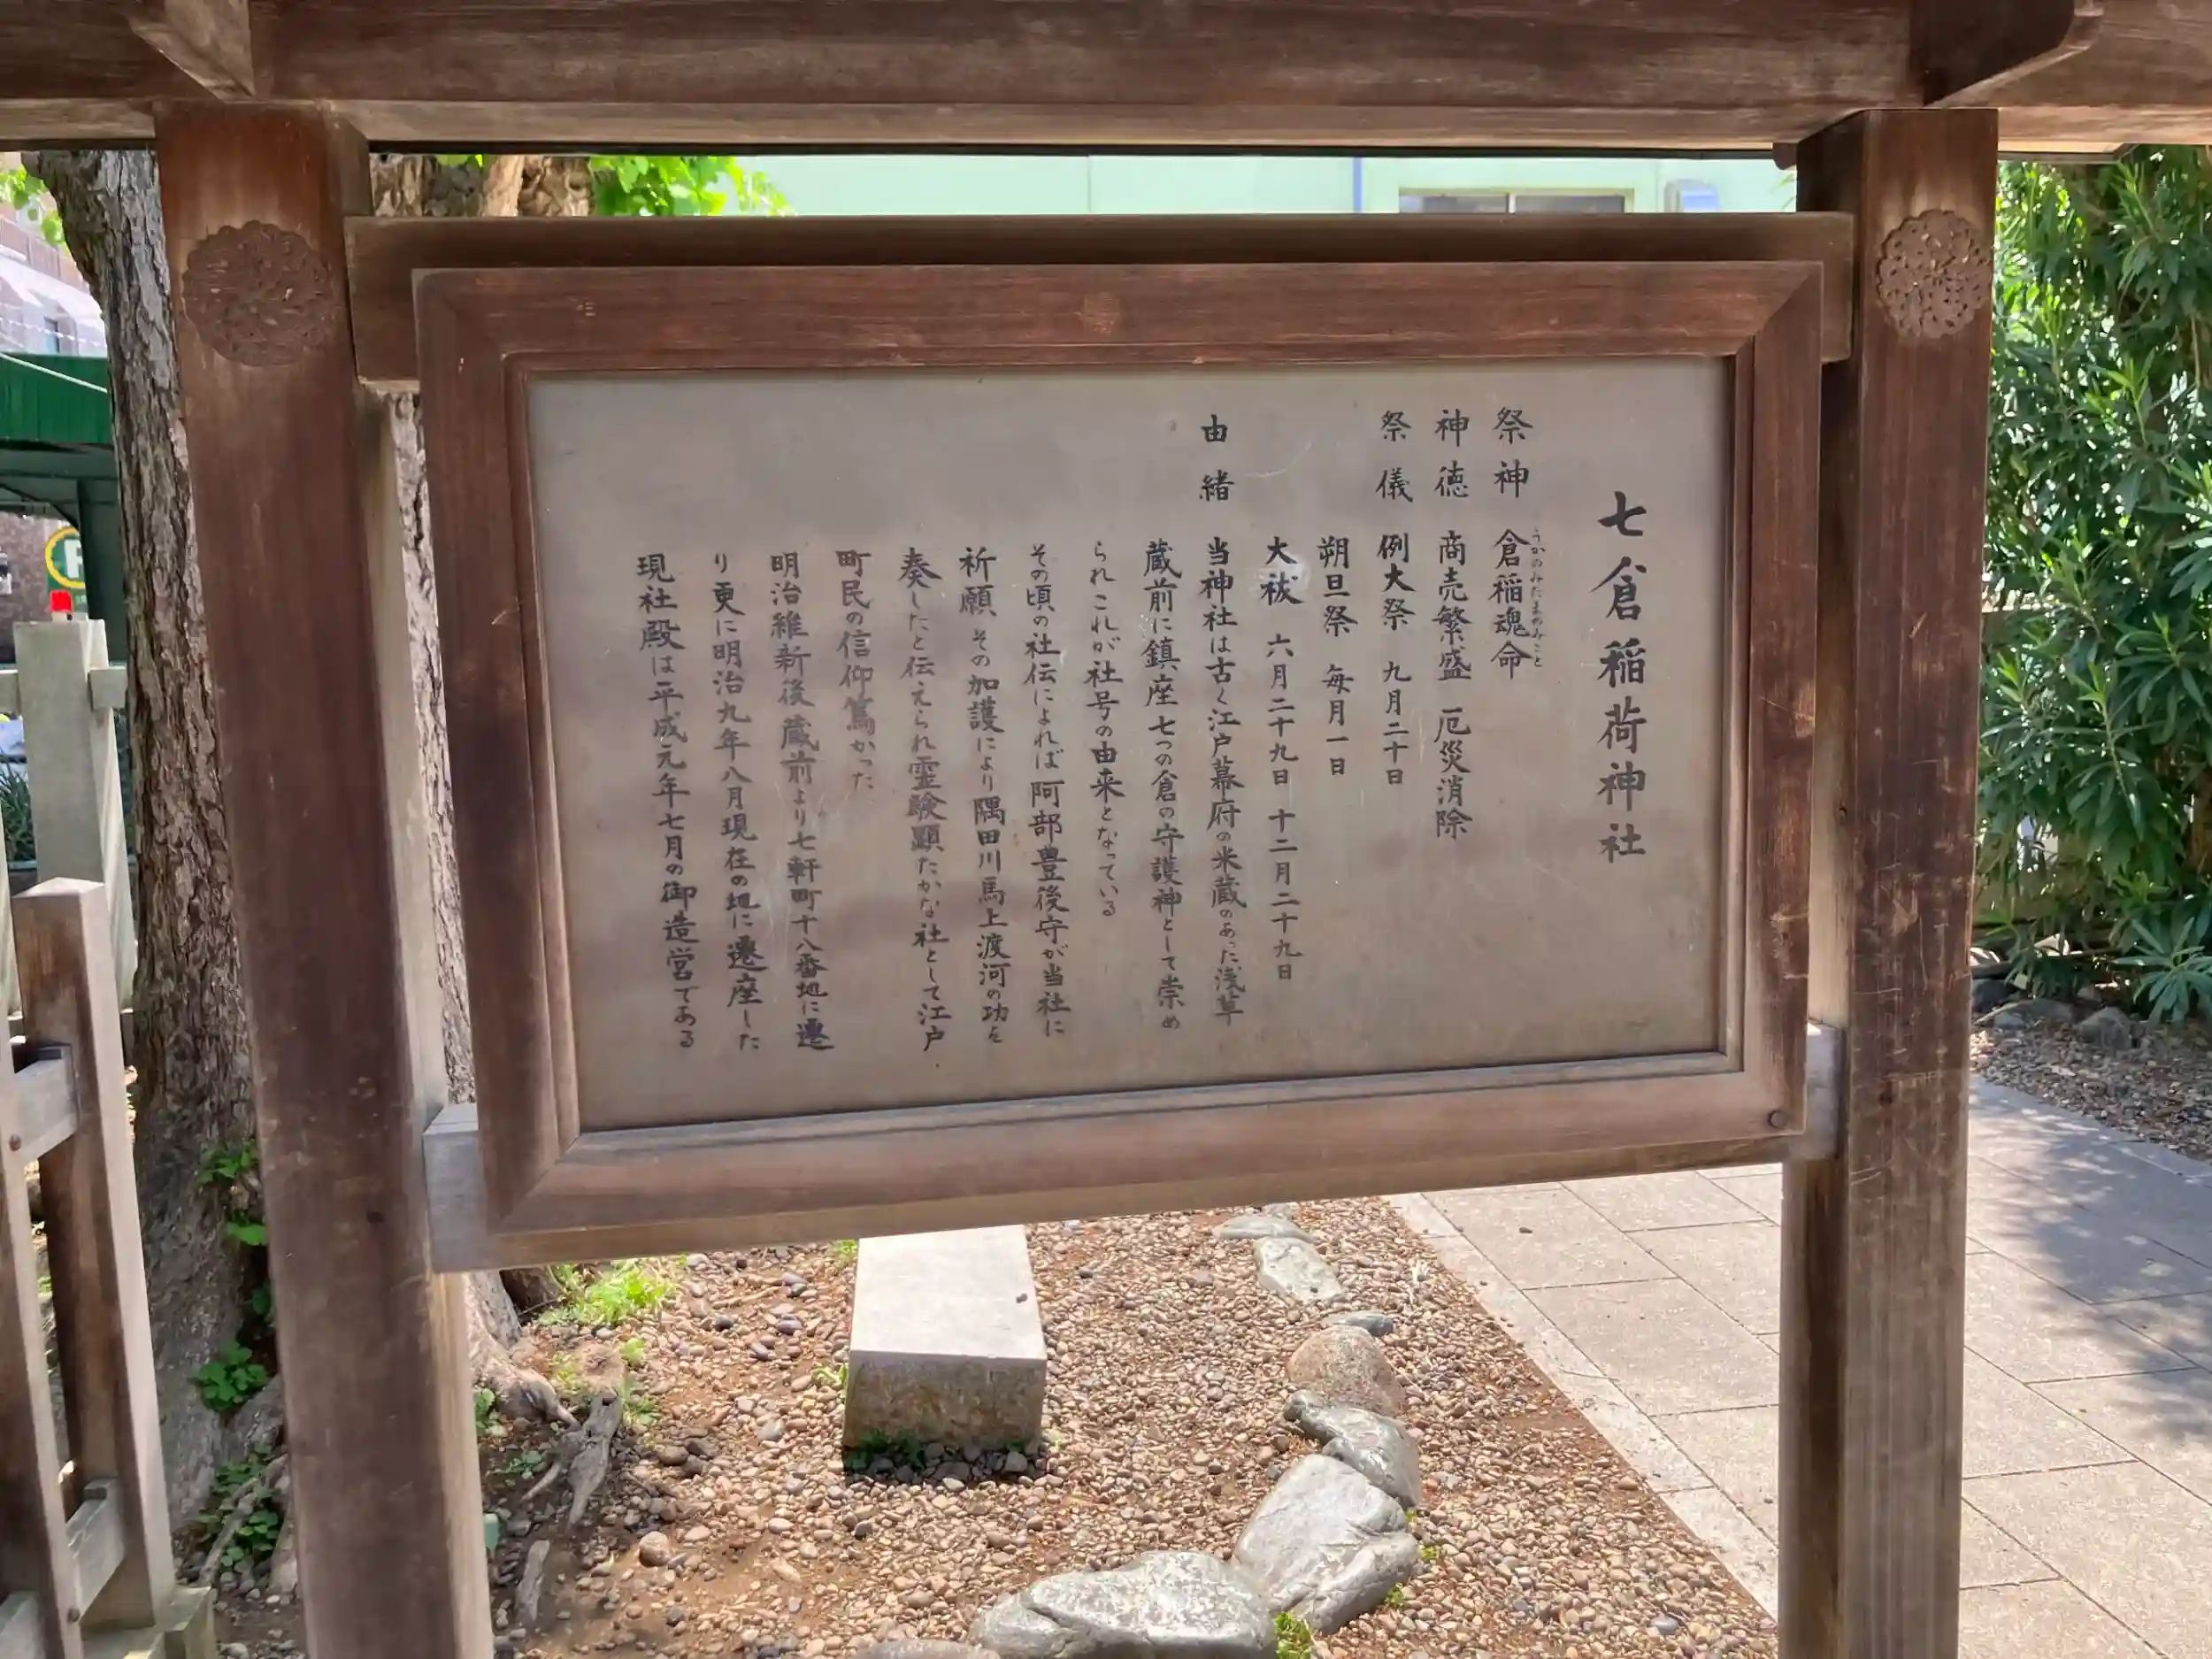 七倉稲荷神社
祭神 倉稲魂命
うかのみたまのみこと
神徳 商売繁盛 厄災消除
祭儀 例大祭 九月二十日
朔旦祭 毎月一日
大祓 六月二十九日 十二月二十九日
由緒 当神社は古く江戸幕府の米蔵のあった浅草
蔵前に鎮座 七つの倉の守護神として崇め
られこれが社号の由来となっている
その頃の社伝によれば 阿部豊後守が当社に
祈願 その加護により隅田川馬上渡河の功を
奏したと伝えられ霊験顕たかな社として江戸
町民の信仰篤かった
明治維新後 蔵前より七軒町十八番地に遷
り更に明治九年八月現在の地に遷座した
現社殿は平成元年七月の御造営である